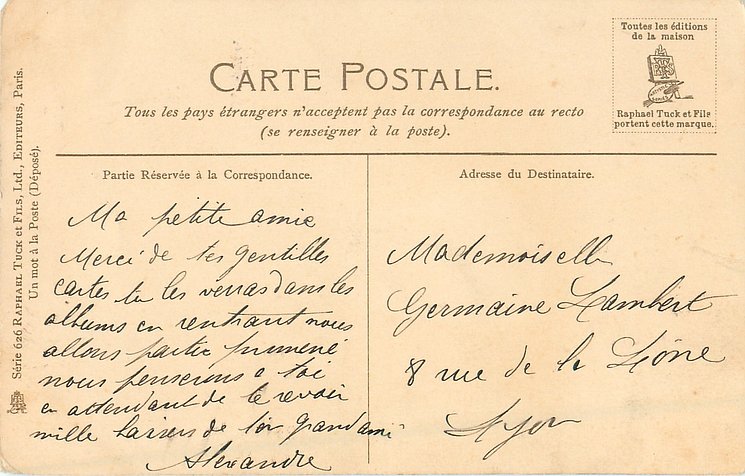 Toutes les éditions
de la maison
Raphael Tuck et Fils
portent cette marque.
CARTE POSTALE.
Tous les pays étrangers n'acceptent pas la correspondance au recto
(se renseigner à la poste).
Série 626 RAPHAEL TUCK ET FILS, LTD., EDITEURS, Paris.
Un mot à la Poste (Déposé).
Partie Réservée à la Correspondance.
Ma petite amie
Merci de tes gentilles
cartes tu les verras dans les
albums en rentrant nous
allons partir promené
nous penserons a toi
en attendant de te revoir
mille baisers de ton grand ami
Alexandre
Adresse du Destinataire.
Mademoiselle
Germaine Lambert
8 rue de la
Lyon